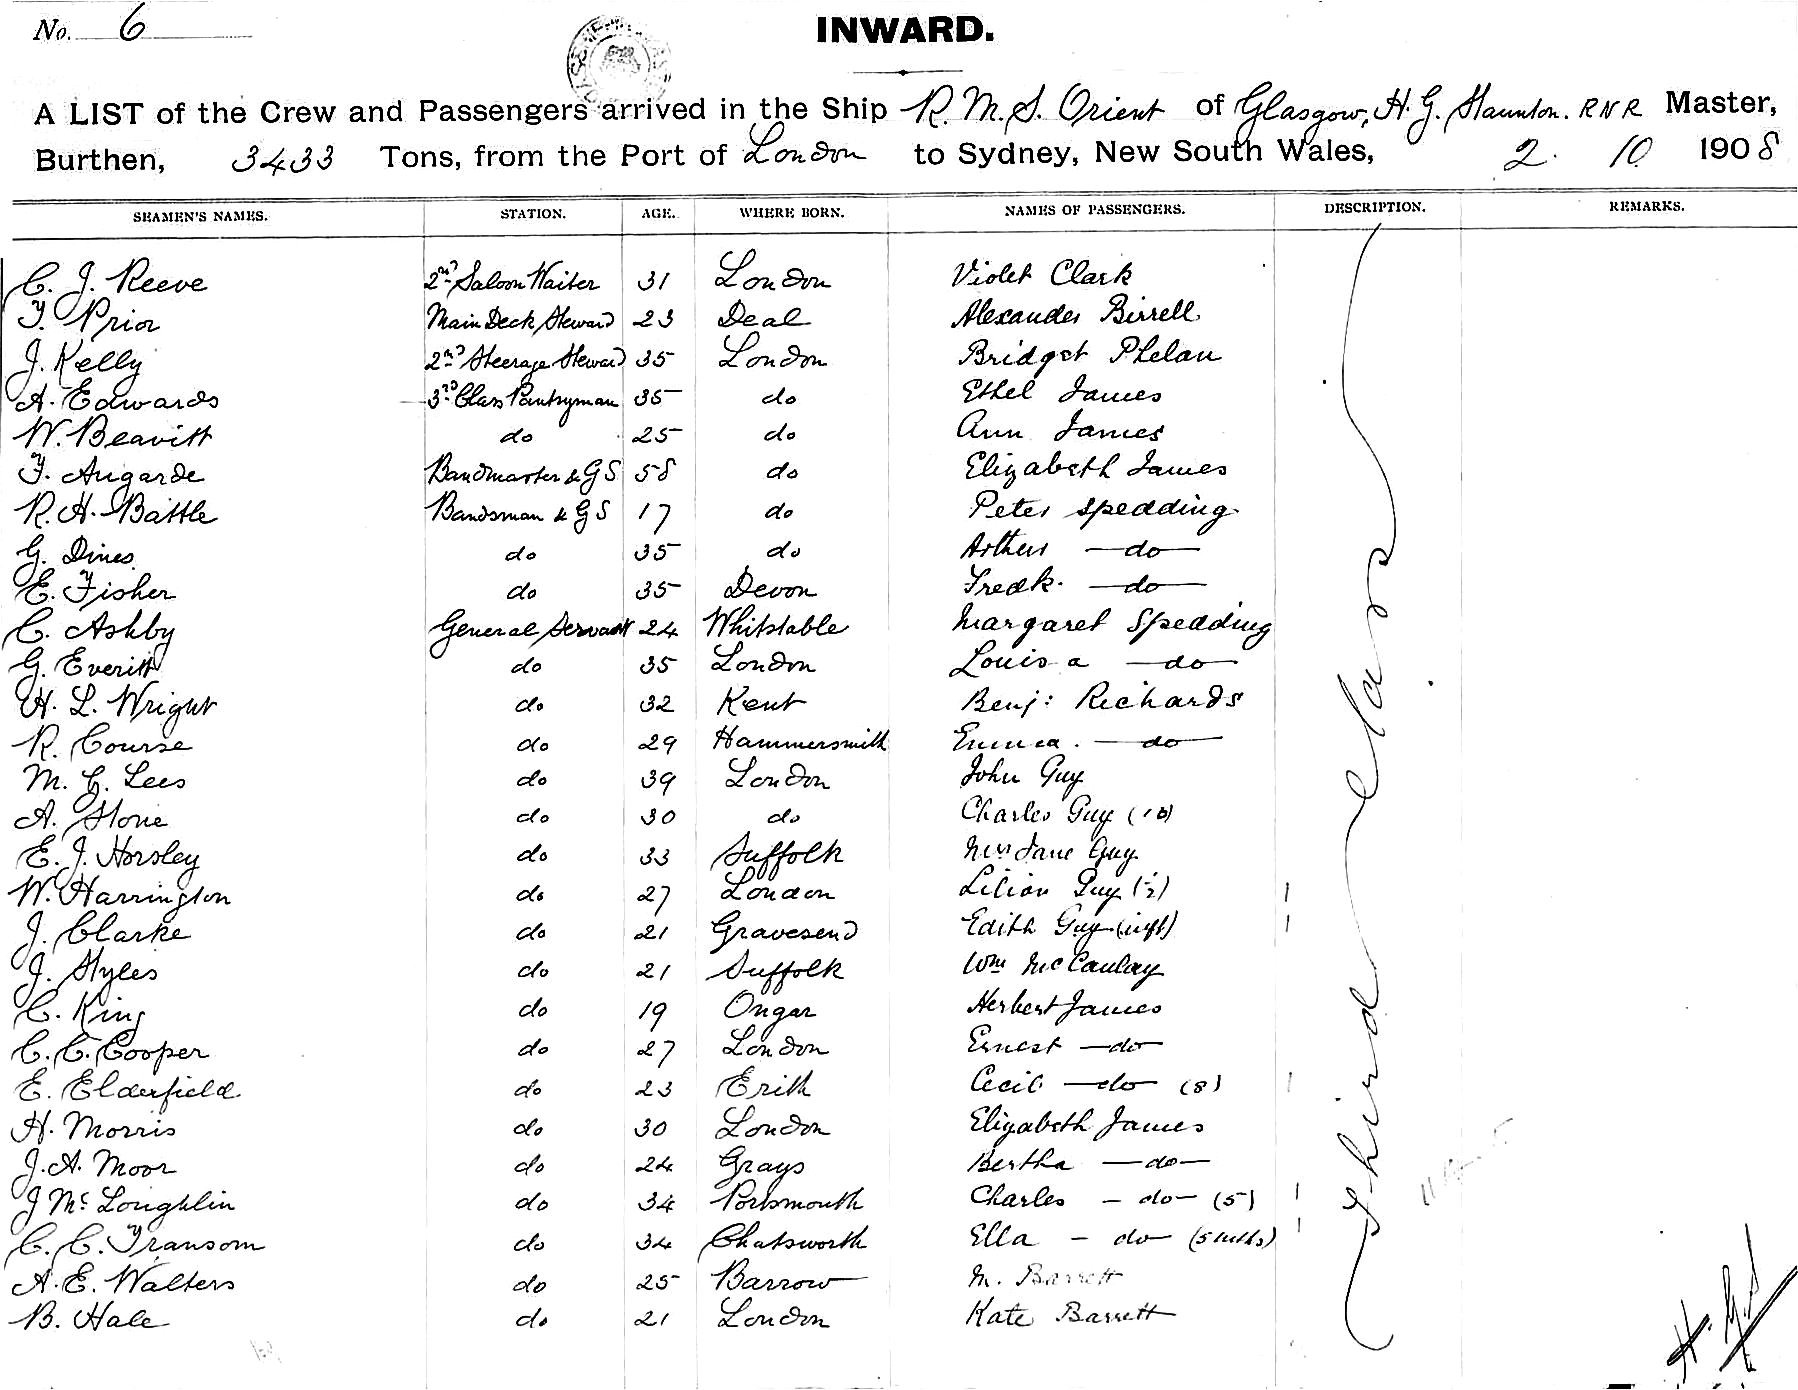 No. 6
INWARD.
A LIST of the Crew and Passengers arrived in the Ship R.M.S. Orient of Glasgow, H. G. Staunton. RNR Master,
Burthen, 3433 Tons, from the Port of London to Sydney, New South Wales, 2. 10 1908
SEAMEN'S NAMES. STATION. AGE. WHERE BORN. NAMES OF PASSENGERS. DESCRIPTION. REMARKS.
C. J. Reeve 2nd Saloon Waiter 31 London Violet Clark
F. Prior Main Deck Steward 23 Deal Alexander Birrell
J. Kelly 2nd Steerage Steward 35 London Bridget Phelan
A. Edwards 3rd Class Pantryman 35 do Ethel James
W. Beavitt do 25 do Ann James
F. Augarde Bandmaster & GS 58 do Elizabeth James
R. H. Battle Bandsman & GS 17 do Peter Spedding
G. Dines do 35 do Arthur do
E. Fisher do 35 Devon Fredk. do
C. Ashby General Servant 24 Whitstable Margaret Spedding
G. Everitt do 35 London Louisa do
H. L. Wright do 32 Kent Benj: Richards
R. Course do 29 Hammersmith Emma. do
M. C. Lees do 39 London John Guy
A. Stone do 30 do Charles Guy (10)
E. J. Horsley do 33 Suffolk Mrs Jane Guy
W. Harrington do 27 London Lilian Guy (½)
J. Clarke do 21 Gravesend Edith Guy (inft)
J. Styles do 21 Suffolk Wm McCaulay
C. King do 19 Ongar Herbert James
C. C. Cooper do 27 London Ernest do
E. Elderfield do 23 Erith Cecil do (8)
H. Morris do 30 London Elizabeth James
J. A. Moor do 24 Grays Bertha do
J Mc Loughlin do 34 Portsmouth Charles do (5)
C. C. Transom do 34 Chatsworth Ella do (5 mths)
A. E. Walters do 25 Barrow M. Barrett
B. Hale do 21 London Kate Barrett
Third class